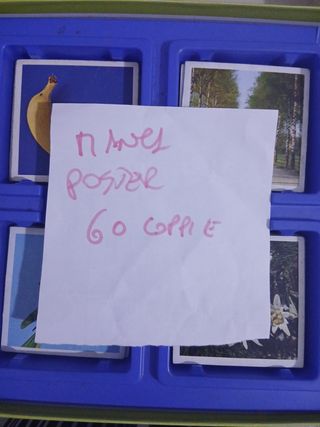 MANCA
POSTER
60 COPPIE